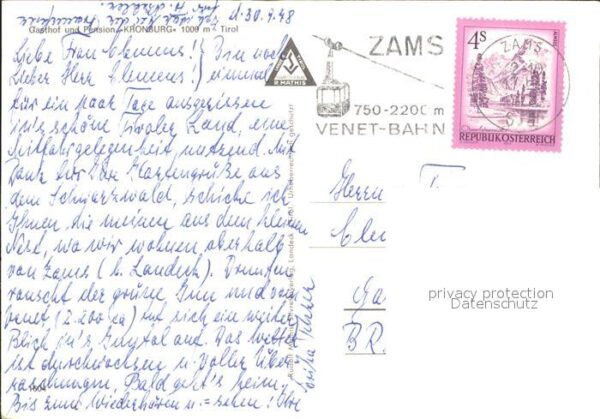 d. 30. 9. 78
Gasthof und Pension „KRONBURG“ 1000 m Tirol
Liebe Frau Clemens! Bin noch
Lieber Herr Clemens! einmal
für ein paar Tage ausgerissen
in's schöne Tiroler Land, eine
Mitfahrgelegenheit nutzend. Mit
Dank für die Kartengrüße aus
dem Schwarzwald, schicke ich
Ihnen die meinen aus dem kleinen
Nest, wo wir wohnen oberhalb
von Zams (b. Landeck). Drunten
rauscht der grüne Inn und vom
Venet (2.200 m) tut sich ein weiter
Blick in's Inntal auf. Das Wetter
ist durchwachsen u. voller Über-
raschungen. Bald geht's heim.
Bis zum Wiederhören u. = sehen! Ihre
1604
R MATHIS
ZAMS
750-2200 m
VENET-BAHN
4S
REPUBLIK ÖSTERREICH
ZAMS
Herrn
Cle
Ga
BR
privacy protection
Datenschutz